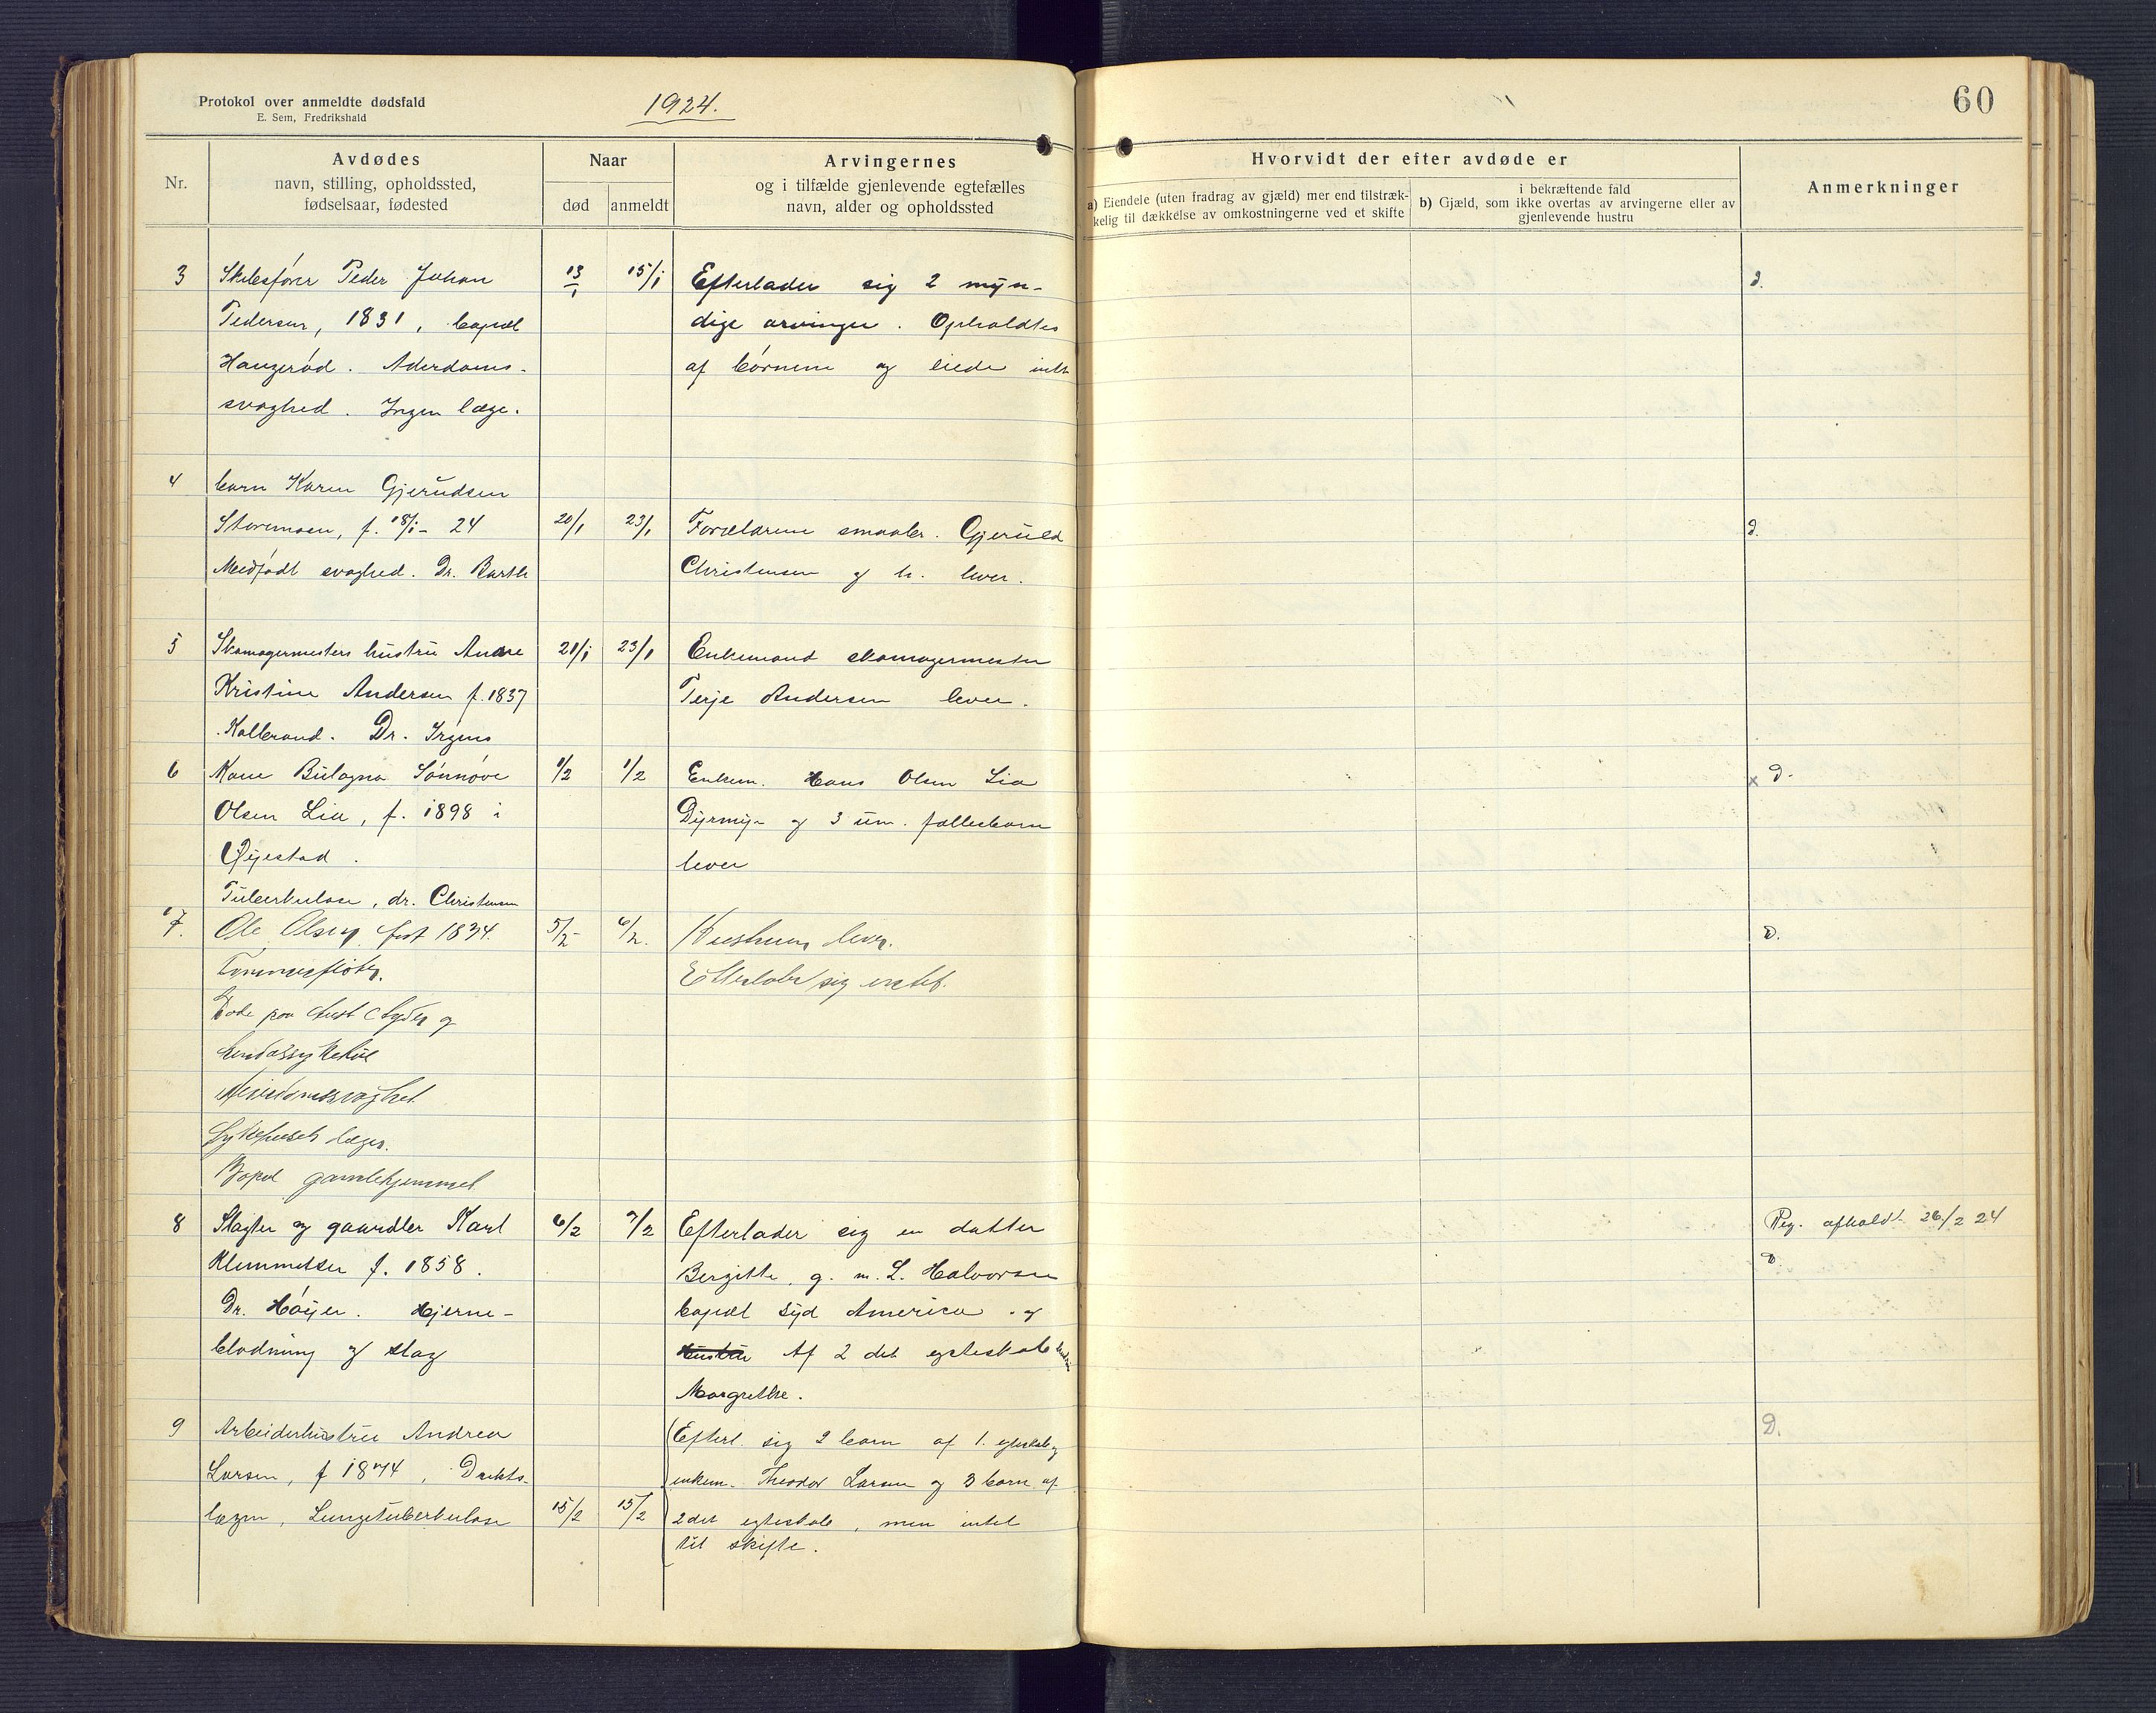 Protokol over anmeldte dødsfald
E. Sem, Fredrikshald
1924.
60
Nr.
Avdødes
navn, stilling, opholdssted,
fødselsaar, fødested
Naar
død
anmeldt
Arvingernes
og i tilfælde gjenlevende egtefælles
navn, alder og opholdssted
Hvorvidt der efter avdøde er
a) Eiendele (uten fradrag av gjæld) mer end tilstræk-
kelig til dækkelse av omkostningerne ved et skifte
i bekræftende fald
b) Gjæld, som ikke overtas av arvingerne eller av
gjenlevende hustru
Anmerkninger
3
Skibsfører Peder Johan
Pedersen, 1831, bopæl
Haugerød. Alderdoms-
svaghed. Ingen læge.
13/1
15/1
Efterlader sig 2 myn-
dige arvinger. Opholdtes
af børnene og eiede intet
D.
4
barn Karen Gjerudsen
Storemoen, f. 18/1- 24
Medfødt svaghed. Dr. Barth
20/1
23/1
Forældrene smaabr. Gjeruld
Christensen og h. lever.
D.
5
Skomagermesters hustru Anne
Kristine Andersen f. 1837
Kolbrand. Dr. Irgens
21/1
23/1
Enkemand skomagermester
Terje Andersen lever.
6
Kone Sønnøve
Olsen Lia, f. 1898 i
Øyestad.
Tuberkulose, dr. Christensen
1/2
1/2
Enkem. Hans Olsen Lia
Dyrmyr og 3 um. fællesbarn
lever
x D.
7.
Ole Olsen født 1834.
Tømmerfløter.
Døde paa Aust Agder og
Arendalssykehus
Alderdomssvaghet
Sykehusets læger.
Bopæl gamlehjemmet
5/2-
6/2.
Hustruen lever.
Efterlater sig intet.
D.
8
Slagter og gaardbr Karl
Klemmetsen f. 1858.
Dr. Høyer. Hjerne-
blødning og slag
6/2
7/2
Efterlader sig en datter
Bergitte, g. m. L. Halvorsen
bopæl Syd America og
hustru Af 2 det egteskab hustru
Margrethe.
Reg. afholdt 26/2 24
D.
9
Arbeiderhustru Andrea
Larsen, f 1874, Distrikts-
lægen, Lungetuberkulose
15/2
15/2
Efterl. sig 2 barn af 1. egteskab og
enkem. Theodor Larsen og 3 barn af
2det egteskab, men intet
til skifte.
D.